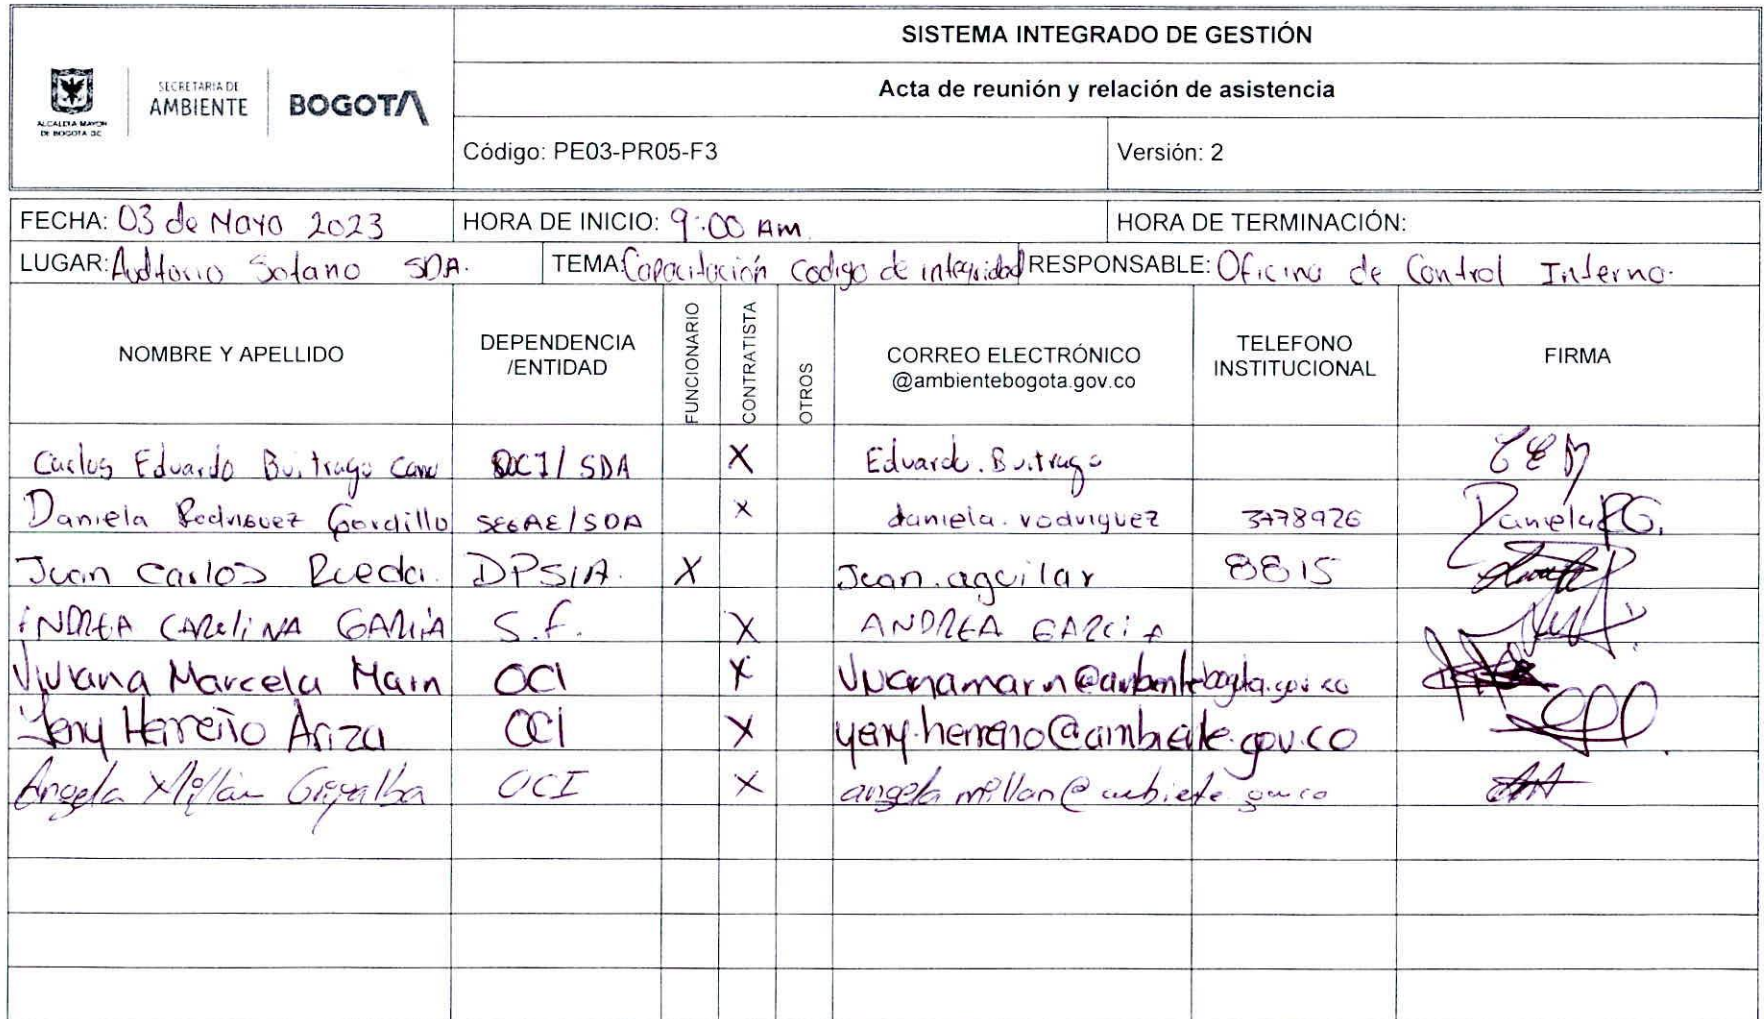 SISTEMA INTEGRADO DE GESTIÓN
ALCALDÍA MAYOR
DE BOGOTÁ DC
SECRETARÍA DE
AMBIENTE
BOGOTÁ
Acta de reunión y relación de asistencia
Código: PE03-PR05-F3 Versión: 2
FECHA: 03 de Mayo 2023 HORA DE INICIO: 9:00 Am. HORA DE TERMINACIÓN:
LUGAR: Auditorio Sotano SDA. TEMA: Capacitación codigo de integridad RESPONSABLE: Oficina de Control Interno.
NOMBRE Y APELLIDO DEPENDENCIA /ENTIDAD FUNCIONARIO CONTRATISTA OTROS CORREO ELECTRÓNICO @ambientebogota.gov.co TELEFONO INSTITUCIONAL FIRMA
Carlos Eduardo Buitrago Cano OCI/SDA X Eduardo.Buitrago CEB
Daniela Rodriguez Gordillo SEGAE/SDA X daniela.rodriguez 3778926 Daniela RG.
Juan Carlos Rueda. DPSIA. X Juan.aguilar 8815
ANDREA CAROLINA GARCIA S.F. X ANDREA GARCIA
Viviana Marcela Marin OCI X Vivianamarin@ambientebogota.gov.co
Yeny Herreño Ariza OCI X yeny.herreno@ambiente.gov.co
Angela Millán Grijalba OCI X angela.millan@ambiente.gov.co